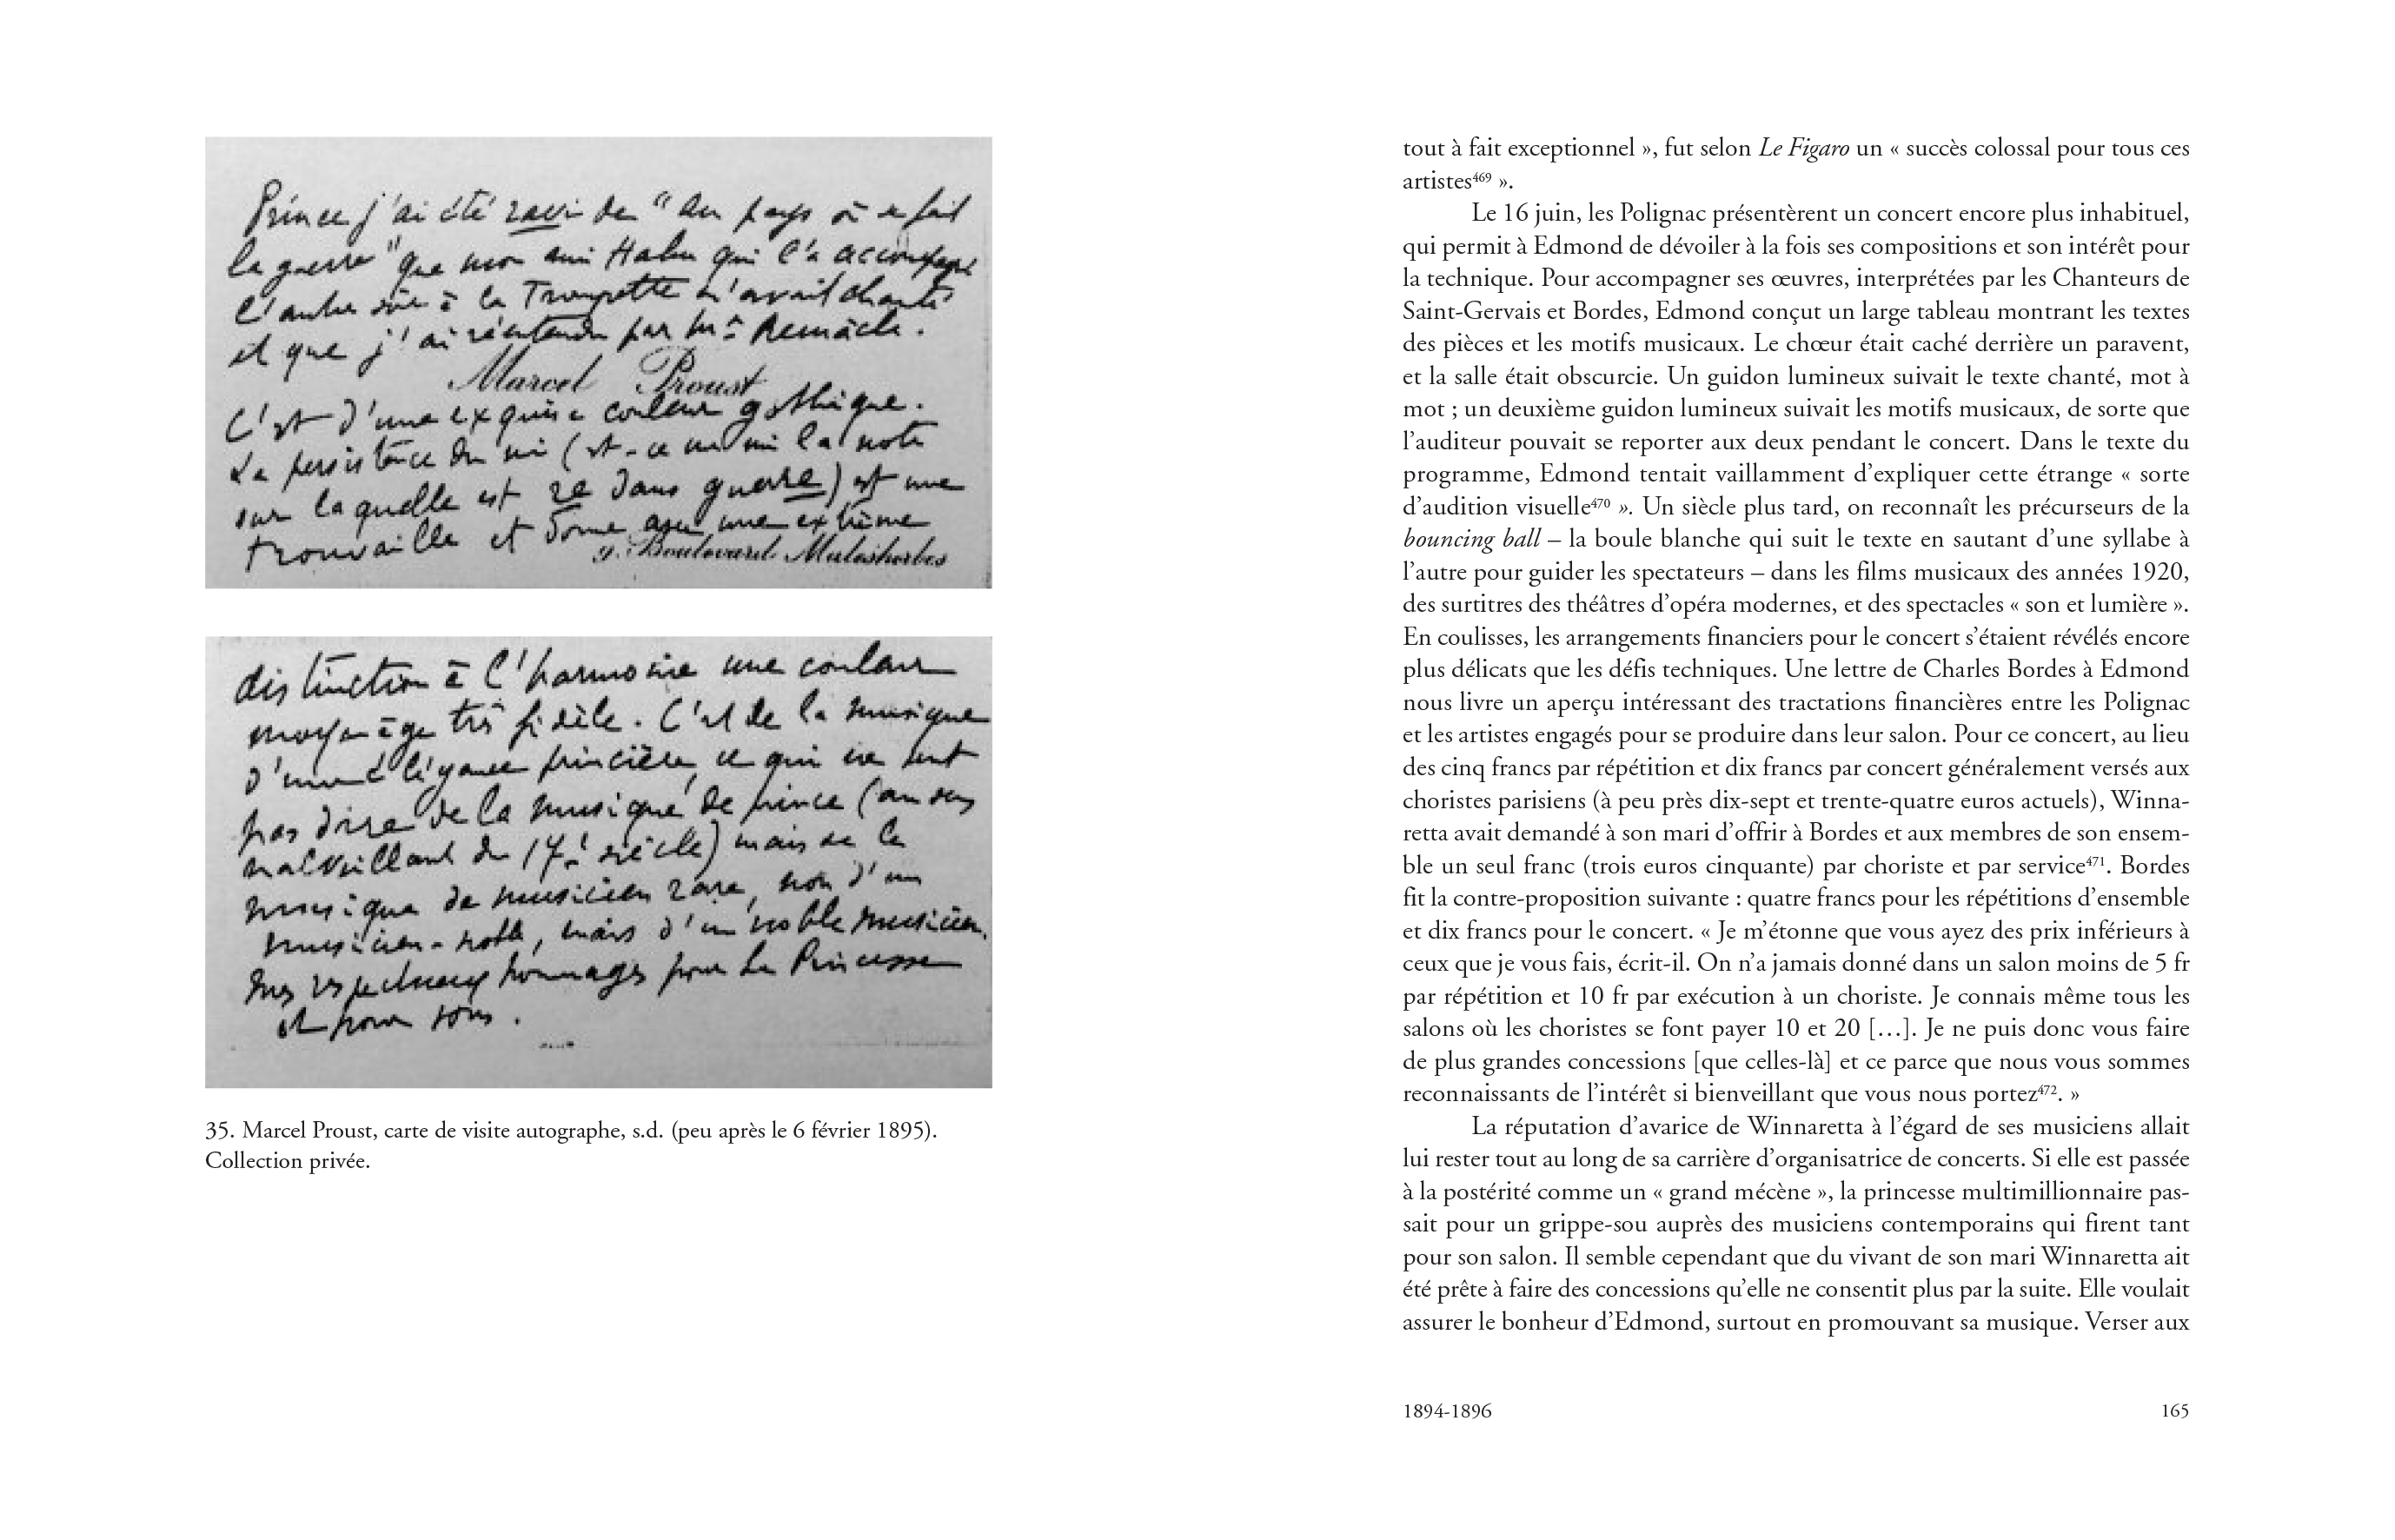 Prince j'ai été ravi de "Au pays où se fait
la guerre" que mon ami Hahn qui l'a accompagné
l'autre soir à la Trompette m'avait chanté
et que j'ai réentendu par Mr Remacle.
Marcel Proust
C'est d'une exquise couleur gothique.
La persistance du mi (est-ce un mi la note
sur laquelle est re dans guerre) est une
trouvaille et donne avec une extrême
9. Boulevard Malesherbes
distinction à l'harmonie une couleur
moyen âge très fidèle. C'est de la musique
d'une élégance princière, ce qui ne veut
pas dire de la musique de prince (au sens
malveillant du 17e siècle) mais de la
musique de musicien rare, non d'un
musicien-noble, mais d'un noble musicien.
Mes respectueux hommages pour la Princesse
et pour vous.
35. Marcel Proust, carte de visite autographe, s.d. (peu après le 6 février 1895).
Collection privée.
tout à fait exceptionnel », fut selon Le Figaro un « succès colossal pour tous ces
artistes⁴⁶⁹ ».
Le 16 juin, les Polignac présentèrent un concert encore plus inhabituel,
qui permit à Edmond de dévoiler à la fois ses compositions et son intérêt pour
la technique. Pour accompagner ses œuvres, interprétées par les Chanteurs de
Saint-Gervais et Bordes, Edmond conçut un large tableau montrant les textes
des pièces et les motifs musicaux. Le chœur était caché derrière un paravent,
et la salle était obscurcie. Un guidon lumineux suivait le texte chanté, mot à
mot ; un deuxième guidon lumineux suivait les motifs musicaux, de sorte que
l'auditeur pouvait se reporter aux deux pendant le concert. Dans le texte du
programme, Edmond tentait vaillamment d'expliquer cette étrange « sorte
d'audition visuelle⁴⁷⁰ ». Un siècle plus tard, on reconnaît les précurseurs de la
bouncing ball – la boule blanche qui suit le texte en sautant d'une syllabe à
l'autre pour guider les spectateurs – dans les films musicaux des années 1920,
des surtitres des théâtres d'opéra modernes, et des spectacles « son et lumière ».
En coulisses, les arrangements financiers pour le concert s'étaient révélés encore
plus délicats que les défis techniques. Une lettre de Charles Bordes à Edmond
nous livre un aperçu intéressant des tractations financières entre les Polignac
et les artistes engagés pour se produire dans leur salon. Pour ce concert, au lieu
des cinq francs par répétition et dix francs par concert généralement versés aux
choristes parisiens (à peu près dix-sept et trente-quatre euros actuels), Winna-
retta avait demandé à son mari d'offrir à Bordes et aux membres de son ensem-
ble un seul franc (trois euros cinquante) par choriste et par service⁴⁷¹. Bordes
fit la contre-proposition suivante : quatre francs pour les répétitions d'ensemble
et dix francs pour le concert. « Je m'étonne que vous ayez des prix inférieurs à
ceux que je vous fais, écrit-il. On n'a jamais donné dans un salon moins de 5 fr
par répétition et 10 fr par exécution à un choriste. Je connais même tous les
salons où les choristes se font payer 10 et 20 […]. Je ne puis donc vous faire
de plus grandes concessions [que celles-là] et ce parce que nous vous sommes
reconnaissants de l'intérêt si bienveillant que vous nous portez⁴⁷². »
La réputation d'avarice de Winnaretta à l'égard de ses musiciens allait
lui rester tout au long de sa carrière d'organisatrice de concerts. Si elle est passée
à la postérité comme un « grand mécène », la princesse multimillionnaire pas-
sait pour un grippe-sou auprès des musiciens contemporains qui firent tant
pour son salon. Il semble cependant que du vivant de son mari Winnaretta ait
été prête à faire des concessions qu'elle ne consentit plus par la suite. Elle voulait
assurer le bonheur d'Edmond, surtout en promouvant sa musique. Verser aux
1894-1896
165